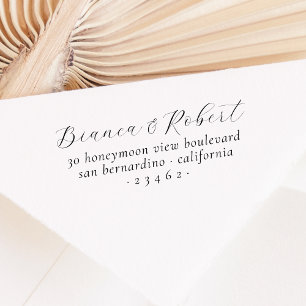 Bianca & Robert
30 honeymoon view boulevard
san bernardino · california
· 2 3 4 6 2 ·